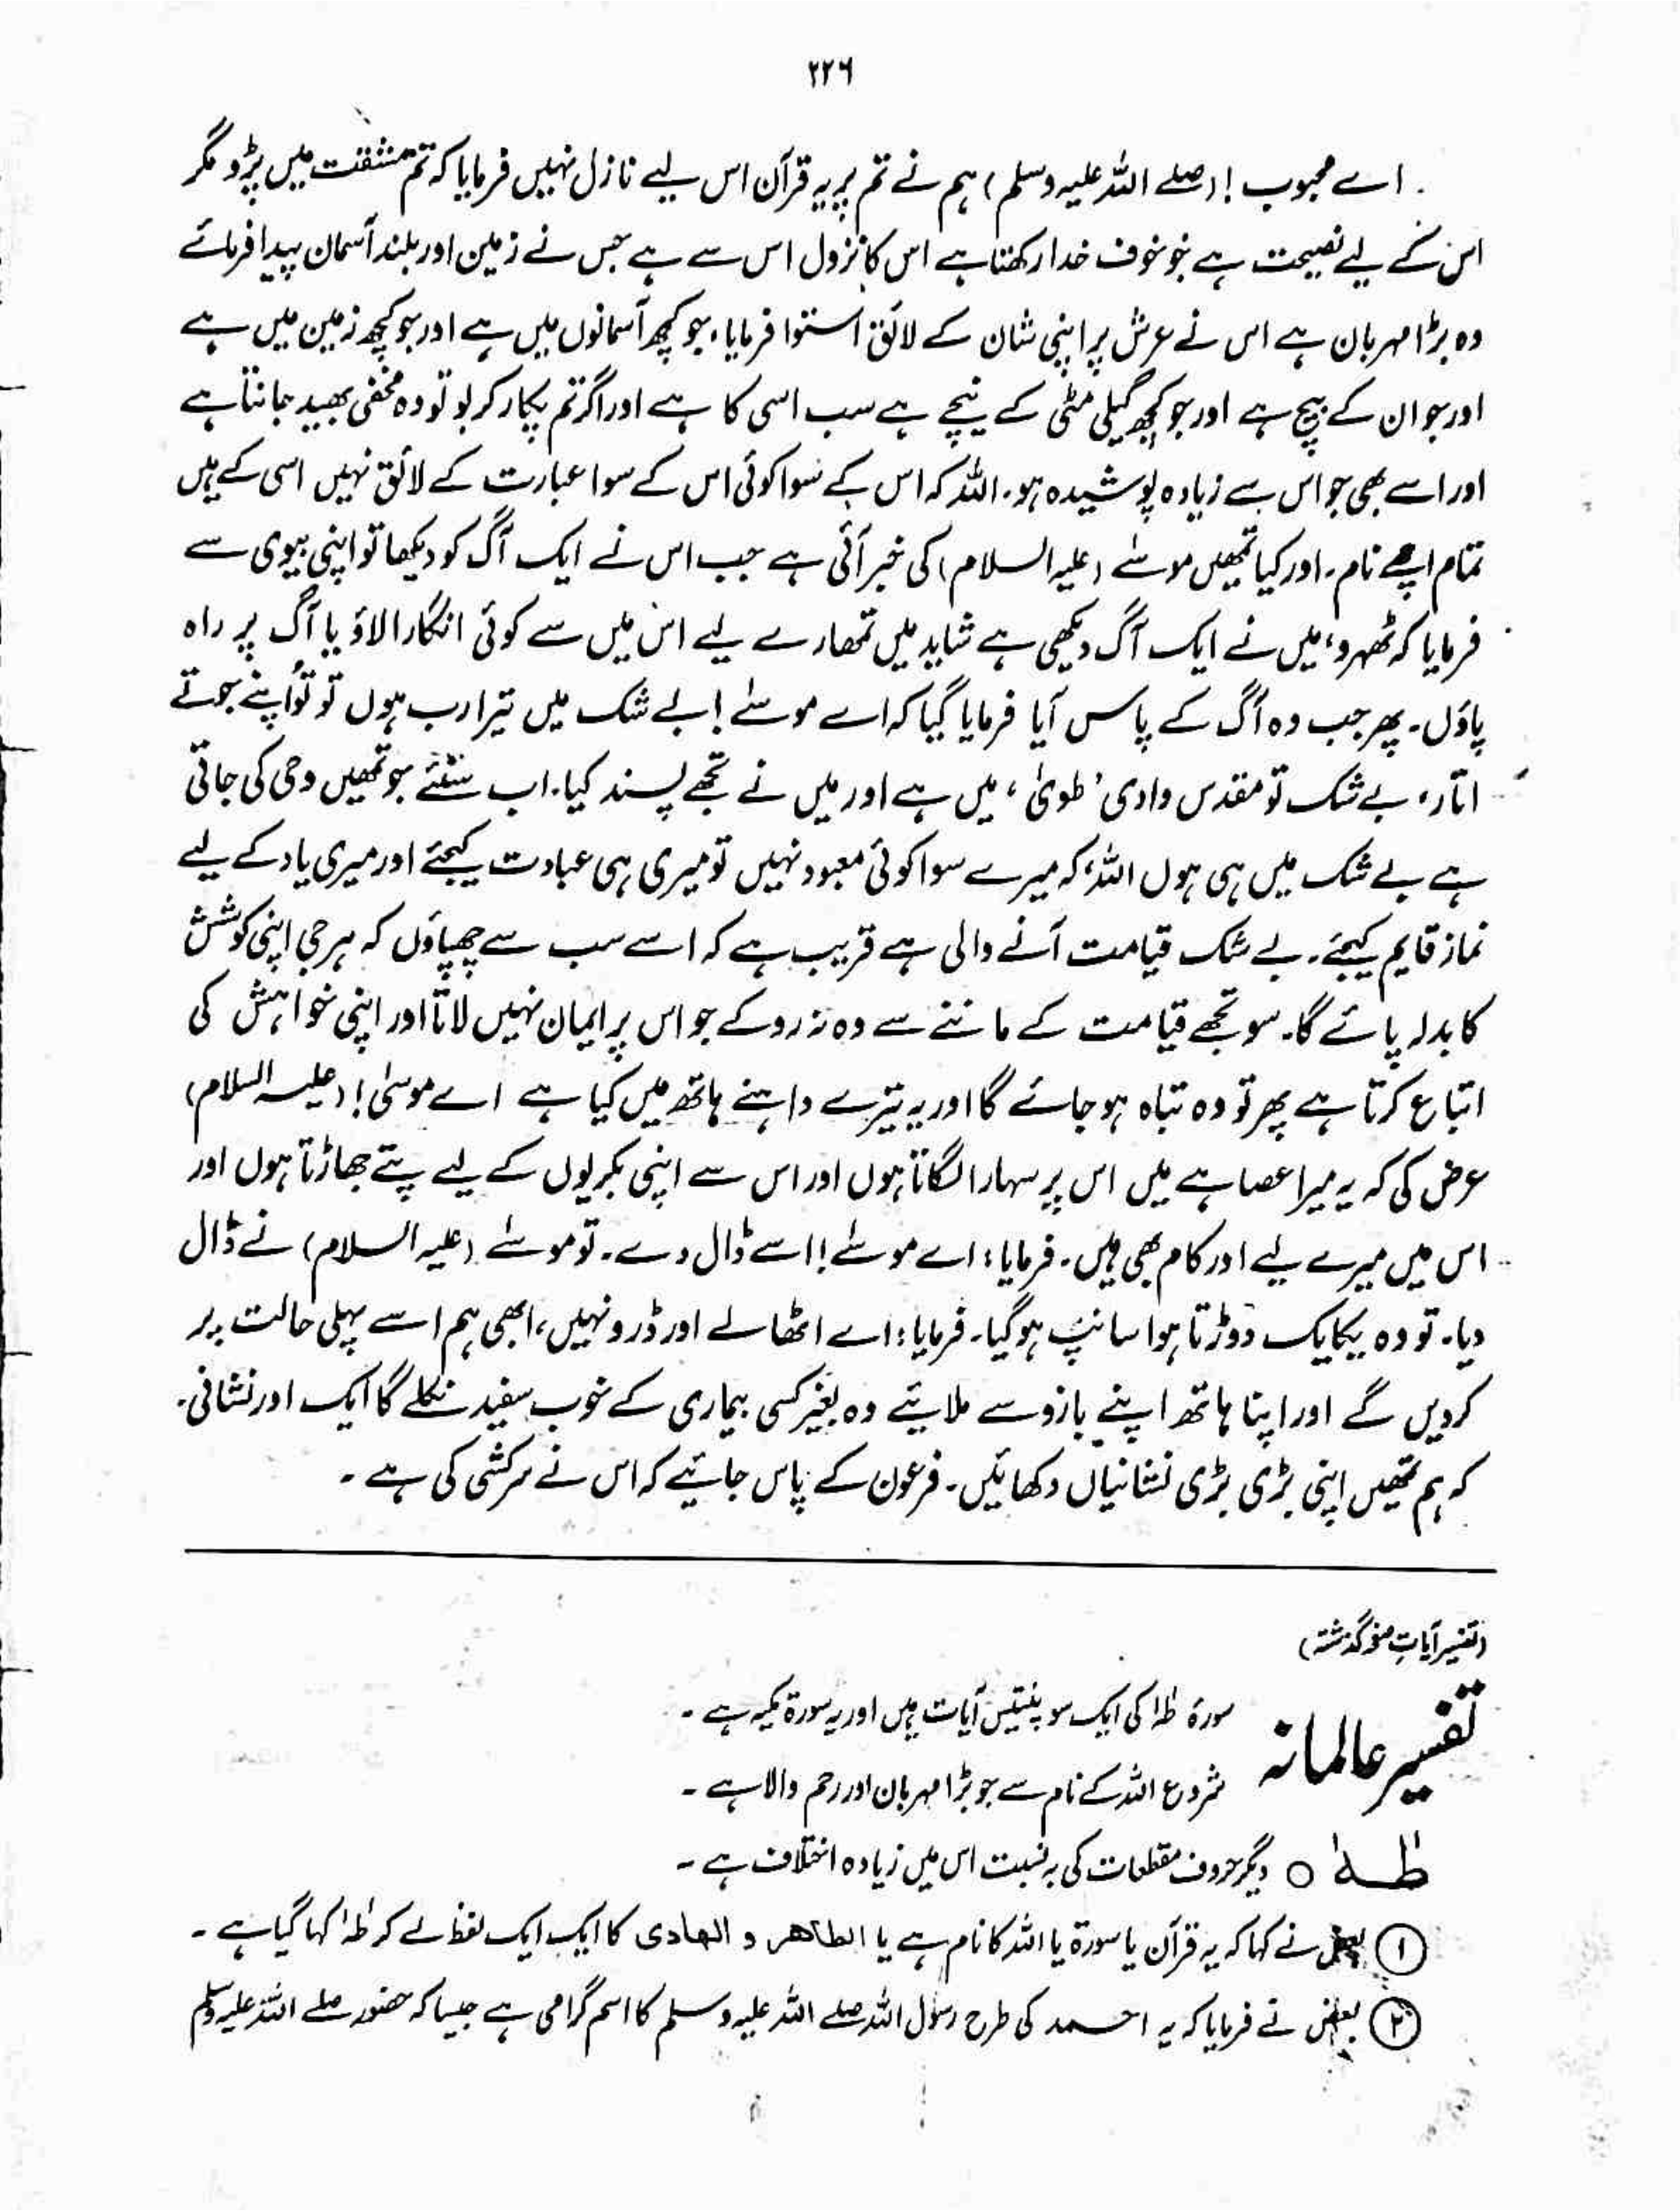 ۲۲۶
اے محبوب! (صلے اللہ علیہ وسلم) ہم نے تم پر یہ قرآن اس لیے نازل نہیں فرمایا کہ تم مشقت میں پڑو مگر
اس کے لیے نصیحت ہے جو خوف خدا رکھتا ہے اس کا نزول اس سے ہے جس نے زمین اور بلند آسمان پیدا فرمائے
وہ بڑا مہربان ہے اس نے عرش پر اپنی شان کے لائق استوا فرمایا، جو کچھ آسمانوں میں ہے اور جو کچھ زمین میں ہے
اور جو ان کے بیچ ہے اور جو کچھ گیلی مٹی کے نیچے ہے سب اسی کا ہے اور اگر تم پکار کر لو تو وہ مخفی بھید جانتا ہے
اور اسے بھی جو اس سے زیادہ پوشیدہ ہو۔ اللہ کہ اس کے سوا کوئی اس کے سوا عبارت کے لائق نہیں اسی کے ہیں
تمام اچھے نام۔ اور کیا تمھیں موسٰے (علیہ السلام) کی خبر آئی ہے جب اس نے ایک آگ کو دیکھا تو اپنی بیوی سے
فرمایا کہ ٹھہرو، میں نے ایک آگ دیکھی ہے شاید میں تمھارے لیے اس میں سے کوئی انگارا لاؤ یا آگ پر راہ
پاؤں۔ پھر جب وہ آگ کے پاس آیا فرمایا گیا کہ اے موسٰے! بے شک میں تیرا رب ہوں تو تُو اپنے جوتے
اتار، بے شک تو مقدس وادی ' طویٰ ' میں ہے اور میں نے تجھے پسند کیا۔ اب سنئے جو تمھیں وحی کی جاتی
ہے بے شک میں ہی ہوں اللہ، کہ میرے سوا کوئی معبود نہیں تو میری ہی عبادت کیجئے اور میری یاد کے لیے
نماز قایم کیجئے۔ بے شک قیامت آنے والی ہے قریب ہے کہ اسے سب سے چھپاؤں کہ ہر جی اپنی کوشش
کا بدلہ پائے گا۔ سو تجھے قیامت کے ماننے سے وہ نہ روکے جو اس پر ایمان نہیں لاتا اور اپنی خواہش کی
اتباع کرتا ہے پھر تو وہ تباہ ہو جائے گا اور یہ تیرے داہنے ہاتھ میں کیا ہے اے موسیٰ! (علیہ السلام)
عرض کی کہ یہ میرا عصا ہے میں اس پر سہارا لگاتا ہوں اور اس سے اپنی بکریوں کے لیے پتے جھاڑتا ہوں اور
اس میں میرے لیے اور کام بھی ہیں۔ فرمایا: اے موسٰے! اسے ڈال دے۔ تو موسٰے (علیہ السلام) نے ڈال
دیا۔ تو وہ یکایک دوڑتا ہوا سانپ ہوگیا۔ فرمایا: اے اٹھالے اور ڈرو نہیں، ابھی ہم اسے پہلی حالت پر
کردیں گے اور اپنا ہاتھ اپنے بازو سے ملائیے وہ بغیر کسی بیماری کے خوب سفید نکلے گا ایک اور نشانی۔
کہ ہم تمھیں اپنی بڑی بڑی نشانیاں دکھائیں۔ فرعون کے پاس جائیے کہ اس نے سرکشی کی ہے۔
(تفسیر آیاتِ صفحہ گذشتہ)
تفسیر عالمانہ سورۂ طٰہٰ کی ایک سو پینتیس آیات ہیں اور یہ سورۃ مکیہ ہے۔
شروع اللہ کے نام سے جو بڑا مہربان اور رحم والا ہے۔
طٰہٰ ○ دیگر حروف مقطعات کی بہ نسبت اس میں زیادہ اختلاف ہے۔
① بعض نے کہا کہ یہ قرآن یا سورۃ یا اللہ کا نام ہے یا الطاھر و الھادی کا ایک ایک لفظ لے کر طٰہٰ کہا گیا ہے۔
② بعض نے فرمایا کہ یہ احمد کی طرح رسول اللہ صلے اللہ علیہ وسلم کا اسم گرامی ہے جیسا کہ حضور صلے اللہ علیہ وسلم